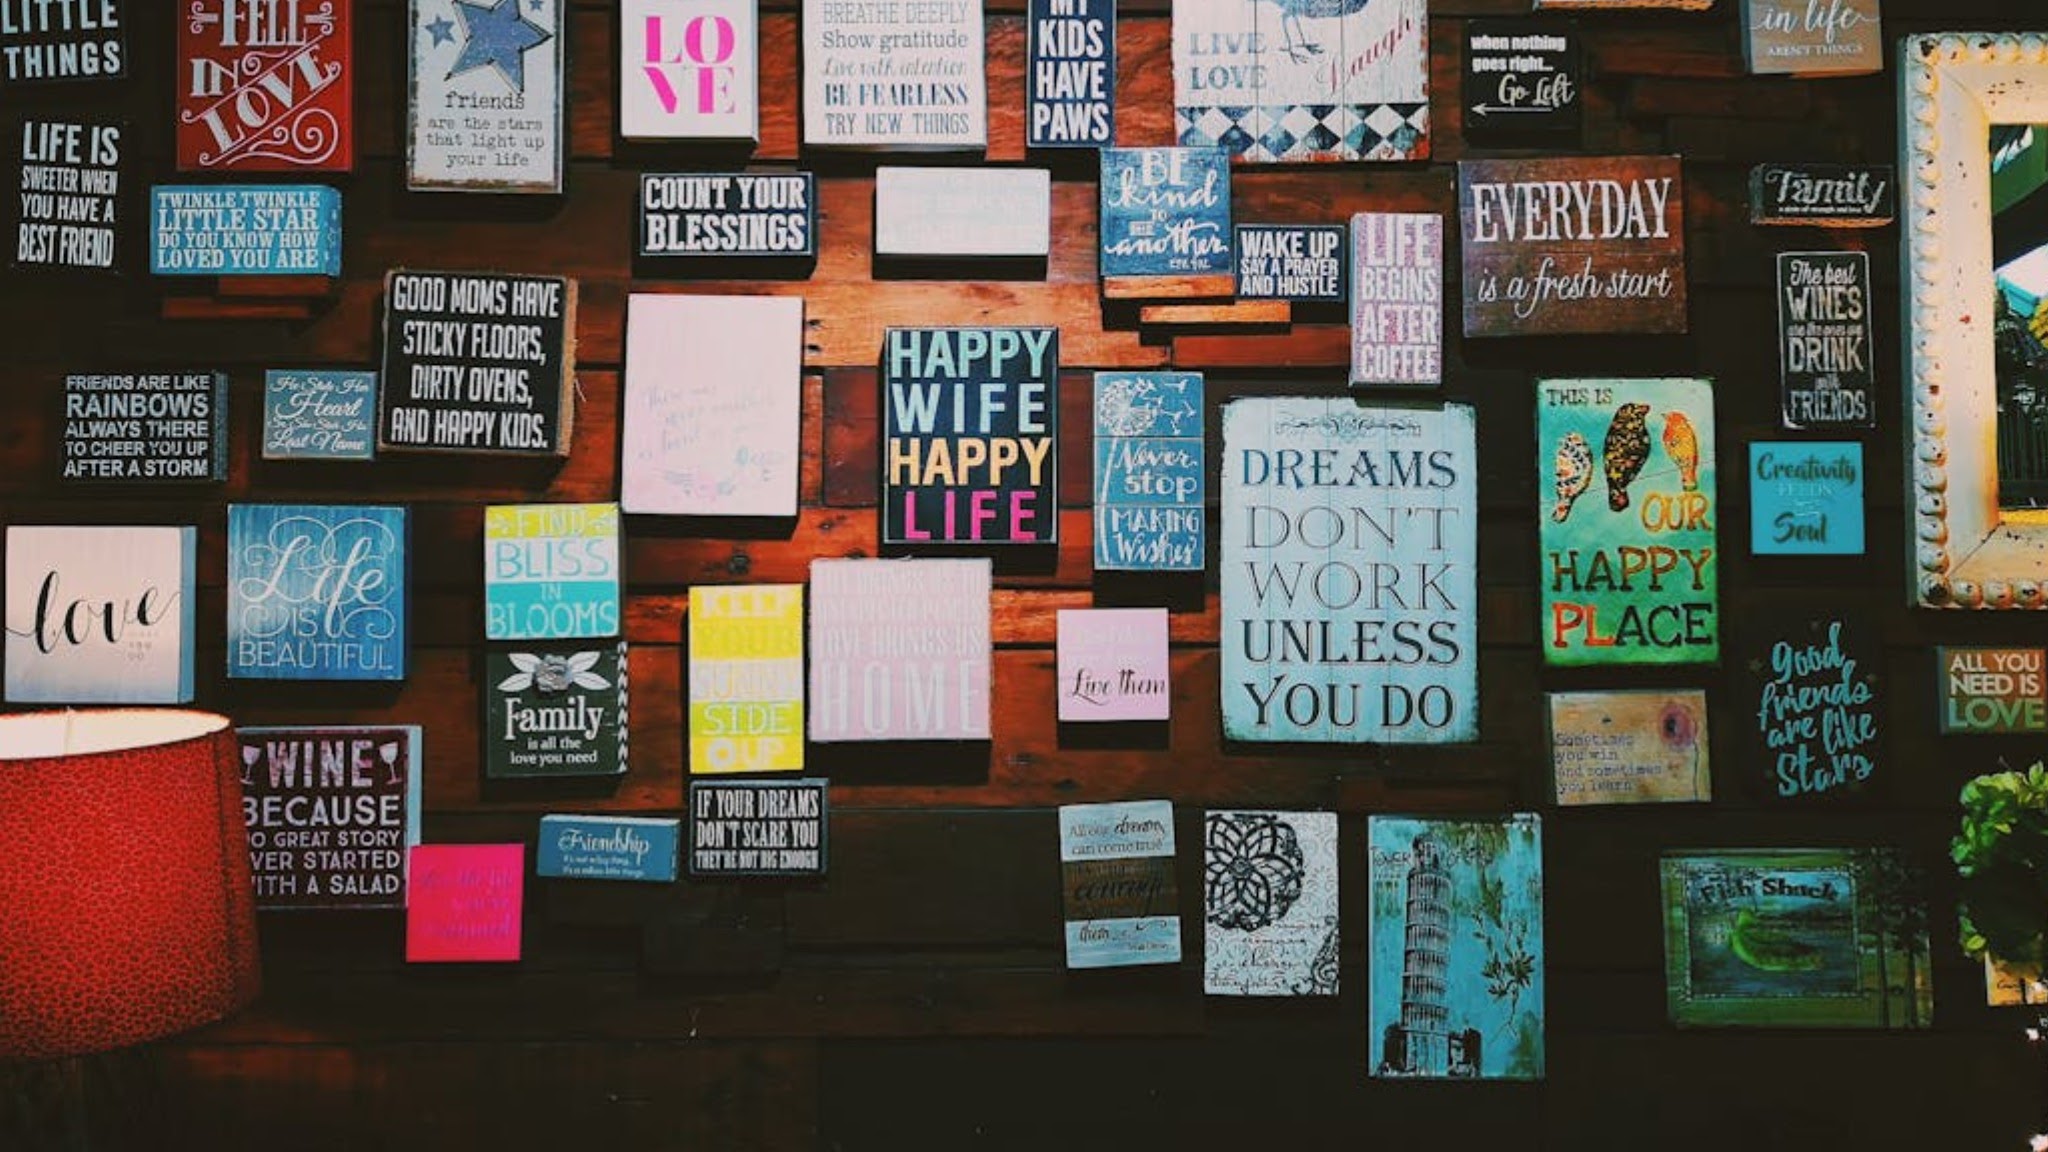 LITTLE
THINGS
FELL
IN
LOVE
friends
are the stars
that light up
your life
LO
VE
BREATHE DEEPLY
Show gratitude
Live with intention
BE FEARLESS
TRY NEW THINGS
MY
KIDS
HAVE
PAWS
LIVE
LOVE
Laugh
when nothing
goes right...
Go Left
in life
AREN'T THINGS
LIFE IS
SWEETER WHEN
YOU HAVE A
BEST FRIEND
TWINKLE TWINKLE
LITTLE STAR
DO YOU KNOW HOW
LOVED YOU ARE
COUNT YOUR
BLESSINGS
BE
kind
TO
ONE
another
WAKE UP
SAY A PRAYER
AND HUSTLE
LIFE
BEGINS
AFTER
COFFEE
EVERYDAY
is a fresh start
Family
The best
WINES
are the ones we
DRINK
with
FRIENDS
GOOD MOMS HAVE
STICKY FLOORS,
DIRTY OVENS,
AND HAPPY KIDS.
FRIENDS ARE LIKE
RAINBOWS
ALWAYS THERE
TO CHEER YOU UP
AFTER A STORM
He Stole Her
Heart
So She Stole His
Last Name
HAPPY
WIFE
HAPPY
LIFE
Never
stop
MAKING
Wishes
DREAMS
DON'T
WORK
UNLESS
YOU DO
THIS IS
OUR
HAPPY
PLACE
Creativity
FEEDS
THE
Soul
love
Life
IS
BEAUTIFUL
FIND
BLISS
IN
BLOOMS
Family
is all the
love you need
KEEP
YOUR
SUNNY
SIDE
UP
LOVE BRINGS US
HOME
Live them
Sometimes
you win
and sometimes
you learn
good
friends
are like
Stars
ALL YOU
NEED IS
LOVE
WINE
BECAUSE
NO GREAT STORY
EVER STARTED
WITH A SALAD
Friendship
It's not a big thing,
it's a million little things.
IF YOUR DREAMS
DON'T SCARE YOU
THEY'RE NOT BIG ENOUGH
All our dreams
can come true
them
TOWER OF
Fish Shack